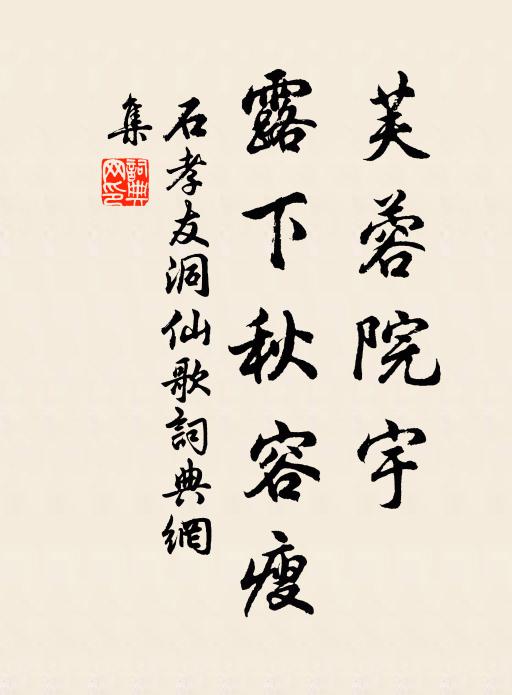 芙蓉院宇
露下秋容瘦
石孝友洞仙歌詞典網
集
詞典网印